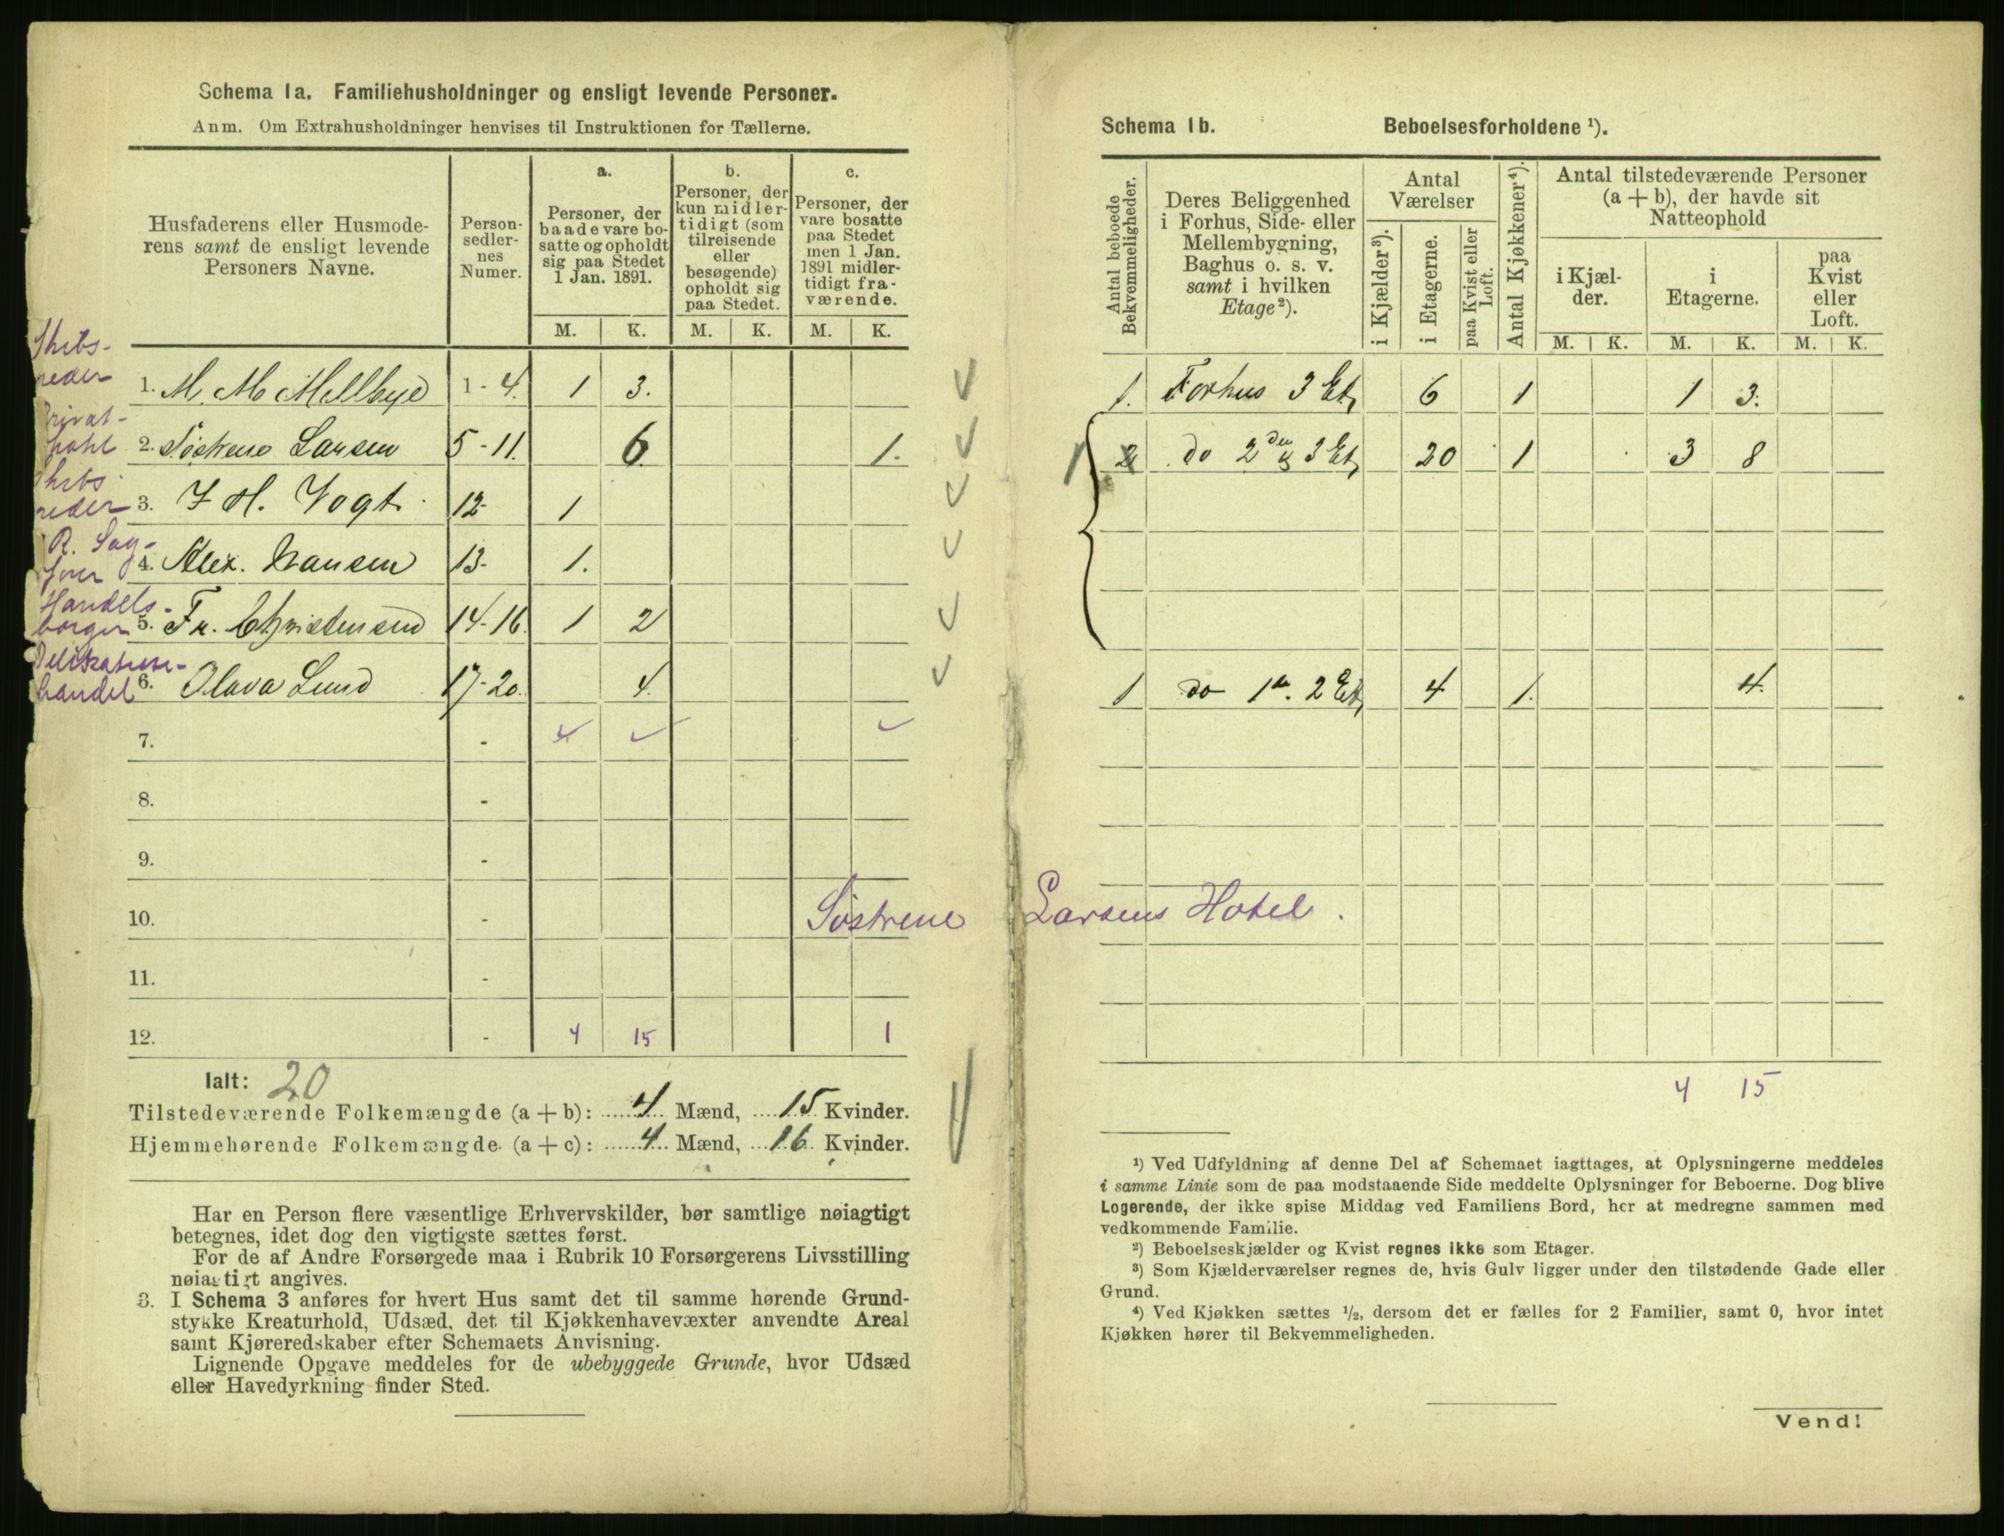 Schema 1a. Familiehusholdninger og ensligt levende Personer.
Anm. Om Extrahusholdninger henvises til Instruktionen for Tællerne.
Husfaderens eller Husmode-
rens samt de ensligt levende
Personers Navne.
Person-
sedler-
nes
Numer.
a.
Personer, der
baade vare bo-
satte og opholdt
sig paa Stedet
1 Jan. 1891.
b.
Personer, der
kun midler-
tidigt (som
tilreisende
eller
besøgende)
opholdt sig
paa Stedet.
c.
Personer, der
vare bosatte
paa Stedet
men 1 Jan.
1891 midler-
tidigt fra-
værende.
M. K. M. K. M. K.
Skibs-
reder
1. M. M. Mellbye 1-4. 1 3.
Privat-
hotel
2. Søstrene Larsen 5-11. 6. 1.
Skibs
reder
3. J H. Vogt. 12- 1
O. Sag-
fører
4. Alex. Hansen 13- 1.
Handels-
borger
5. Fr. Christensen 14-16. 1 2
Delikatesse-
handel
6. Olava Lund 17-20. 4.
7. -
8. -
9. -
10. - Søstrene Larsens Hotel.
11. -
12. - 4 15 1
Ialt: 20
Tilstedeværende Folkemængde (a + b): 4 Mænd, 15 Kvinder.
Hjemmehørende Folkemængde (a + c): 4 Mænd, 16 Kvinder.
Har en Person flere væsentlige Erhvervskilder, bør samtlige nøiagtigt
betegnes, idet dog den vigtigste sættes først.
For de af Andre Forsørgede maa i Rubrik 10 Forsørgerens Livsstilling
nøiagtigt angives.
3. I Schema 3 anføres for hvert Hus samt det til samme hørende Grund-
stykke Kreaturhold, Udsæd, det til Kjøkkenhavevæxter anvendte Areal
samt Kjøreredskaber efter Schemaets Anvisning.
Lignende Opgave meddeles for de ubebyggede Grunde, hvor Udsæd
eller Havedyrkning finder Sted.
Schema 1b. Beboelsesforholdene ¹).
Antal beboede
Bekvemmeligheder.
Deres Beliggenhed
i Forhus, Side- eller
Mellembygning,
Baghus o. s. v.
samt i hvilken
Etage²).
Antal
Værelser
i Kjælder³).
i Etagerne.
paa Kvist eller
Loft.
Antal Kjøkkener⁴).
Antal tilstedeværende Personer
(a + b), der havde sit
Natteophold
i Kjæl-
der.
i
Etagerne.
paa
Kvist
eller
Loft.
M. K. M. K. M. K.
1. Forhus 3 Et, 6 1 1 3.
1 2 do 2den & 3 Et, 20 1 3 8
1 do 1ste. 2 Et, 4 1. 4.
4 15
¹) Ved Udfyldning af denne Del af Schemaet iagttages, at Oplysningerne meddeles
i samme Linie som de paa modstaaende Side meddelte Oplysninger for Beboerne. Dog blive
Logerende, der ikke spise Middag ved Familiens Bord, her at medregne sammen med
vedkommende Familie.
²) Beboelseskjælder og Kvist regnes ikke som Etager.
³) Som Kjælderværelser regnes de, hvis Gulv ligger under den tilstødende Gade eller
Grund.
⁴) Ved Kjøkken sættes ½, dersom det er fælles for 2 Familier, samt 0, hvor intet
Kjøkken hører til Bekvemmeligheden.
Vend!